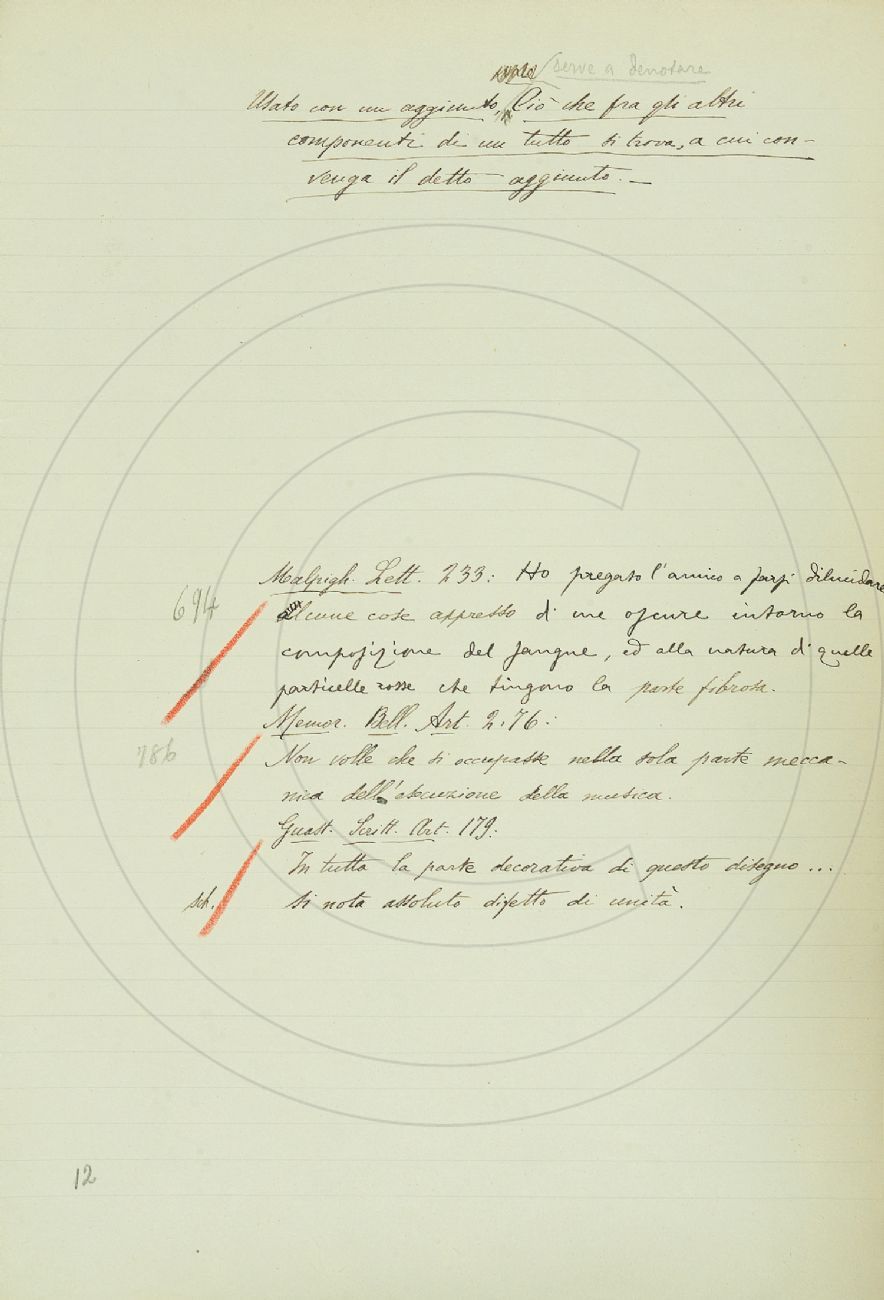 vale serve a denotare
Usato con un aggiunto, Ciò che fra gli altri
componenti di un tutto si trova, a cui con-
venga il detto aggiunto. —
Malpigh. Lett. 233: Ho pregato l'amico a farsi dilucidare
694
alcune cose appresso di me oscure intorno la
composizione del sangue, ed alla natura di quelle
particelle rosse che tingono la parte fibrosa.
Memor. Bell. Art. 2. 76:
786
Non volle che si occupasse nella sola parte mecca-
nica dell'esecuzione della musica.
Guast. Scritt. Art. 179:
In tutta la parte decorativa di questo disegno ...
sch. si nota assoluto difetto di unità.
12